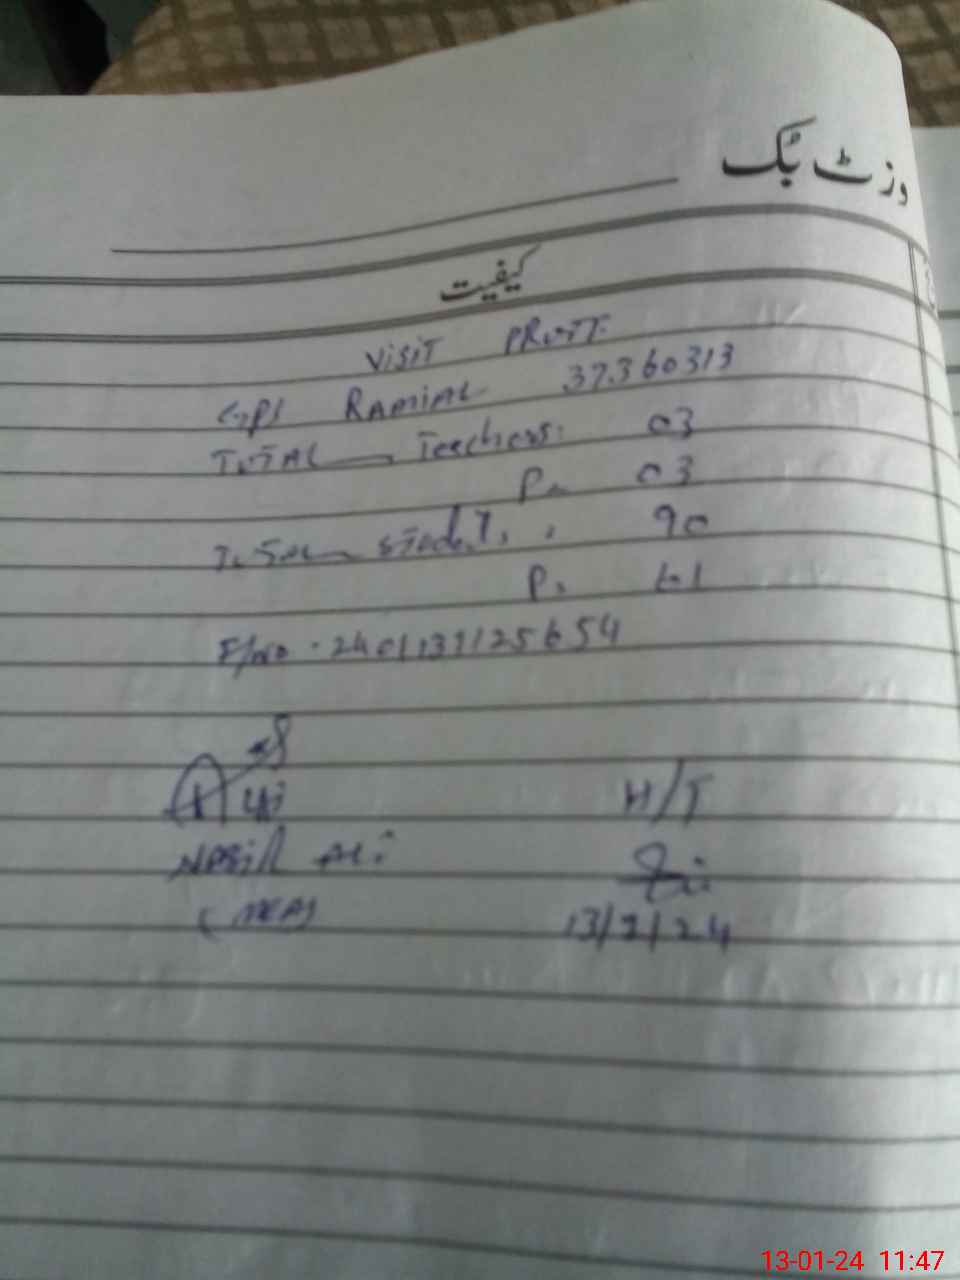 وزٹ بُک
کیفیت
VISIT
GPS RAMIAL 37360313
TOTAL Teachers: 03
P. 03
TOTAL 90
P. 61
F/NO. 2401131125654
H/T
NABill ALi
(MEA)
13/1/24
13-01-24 11:47